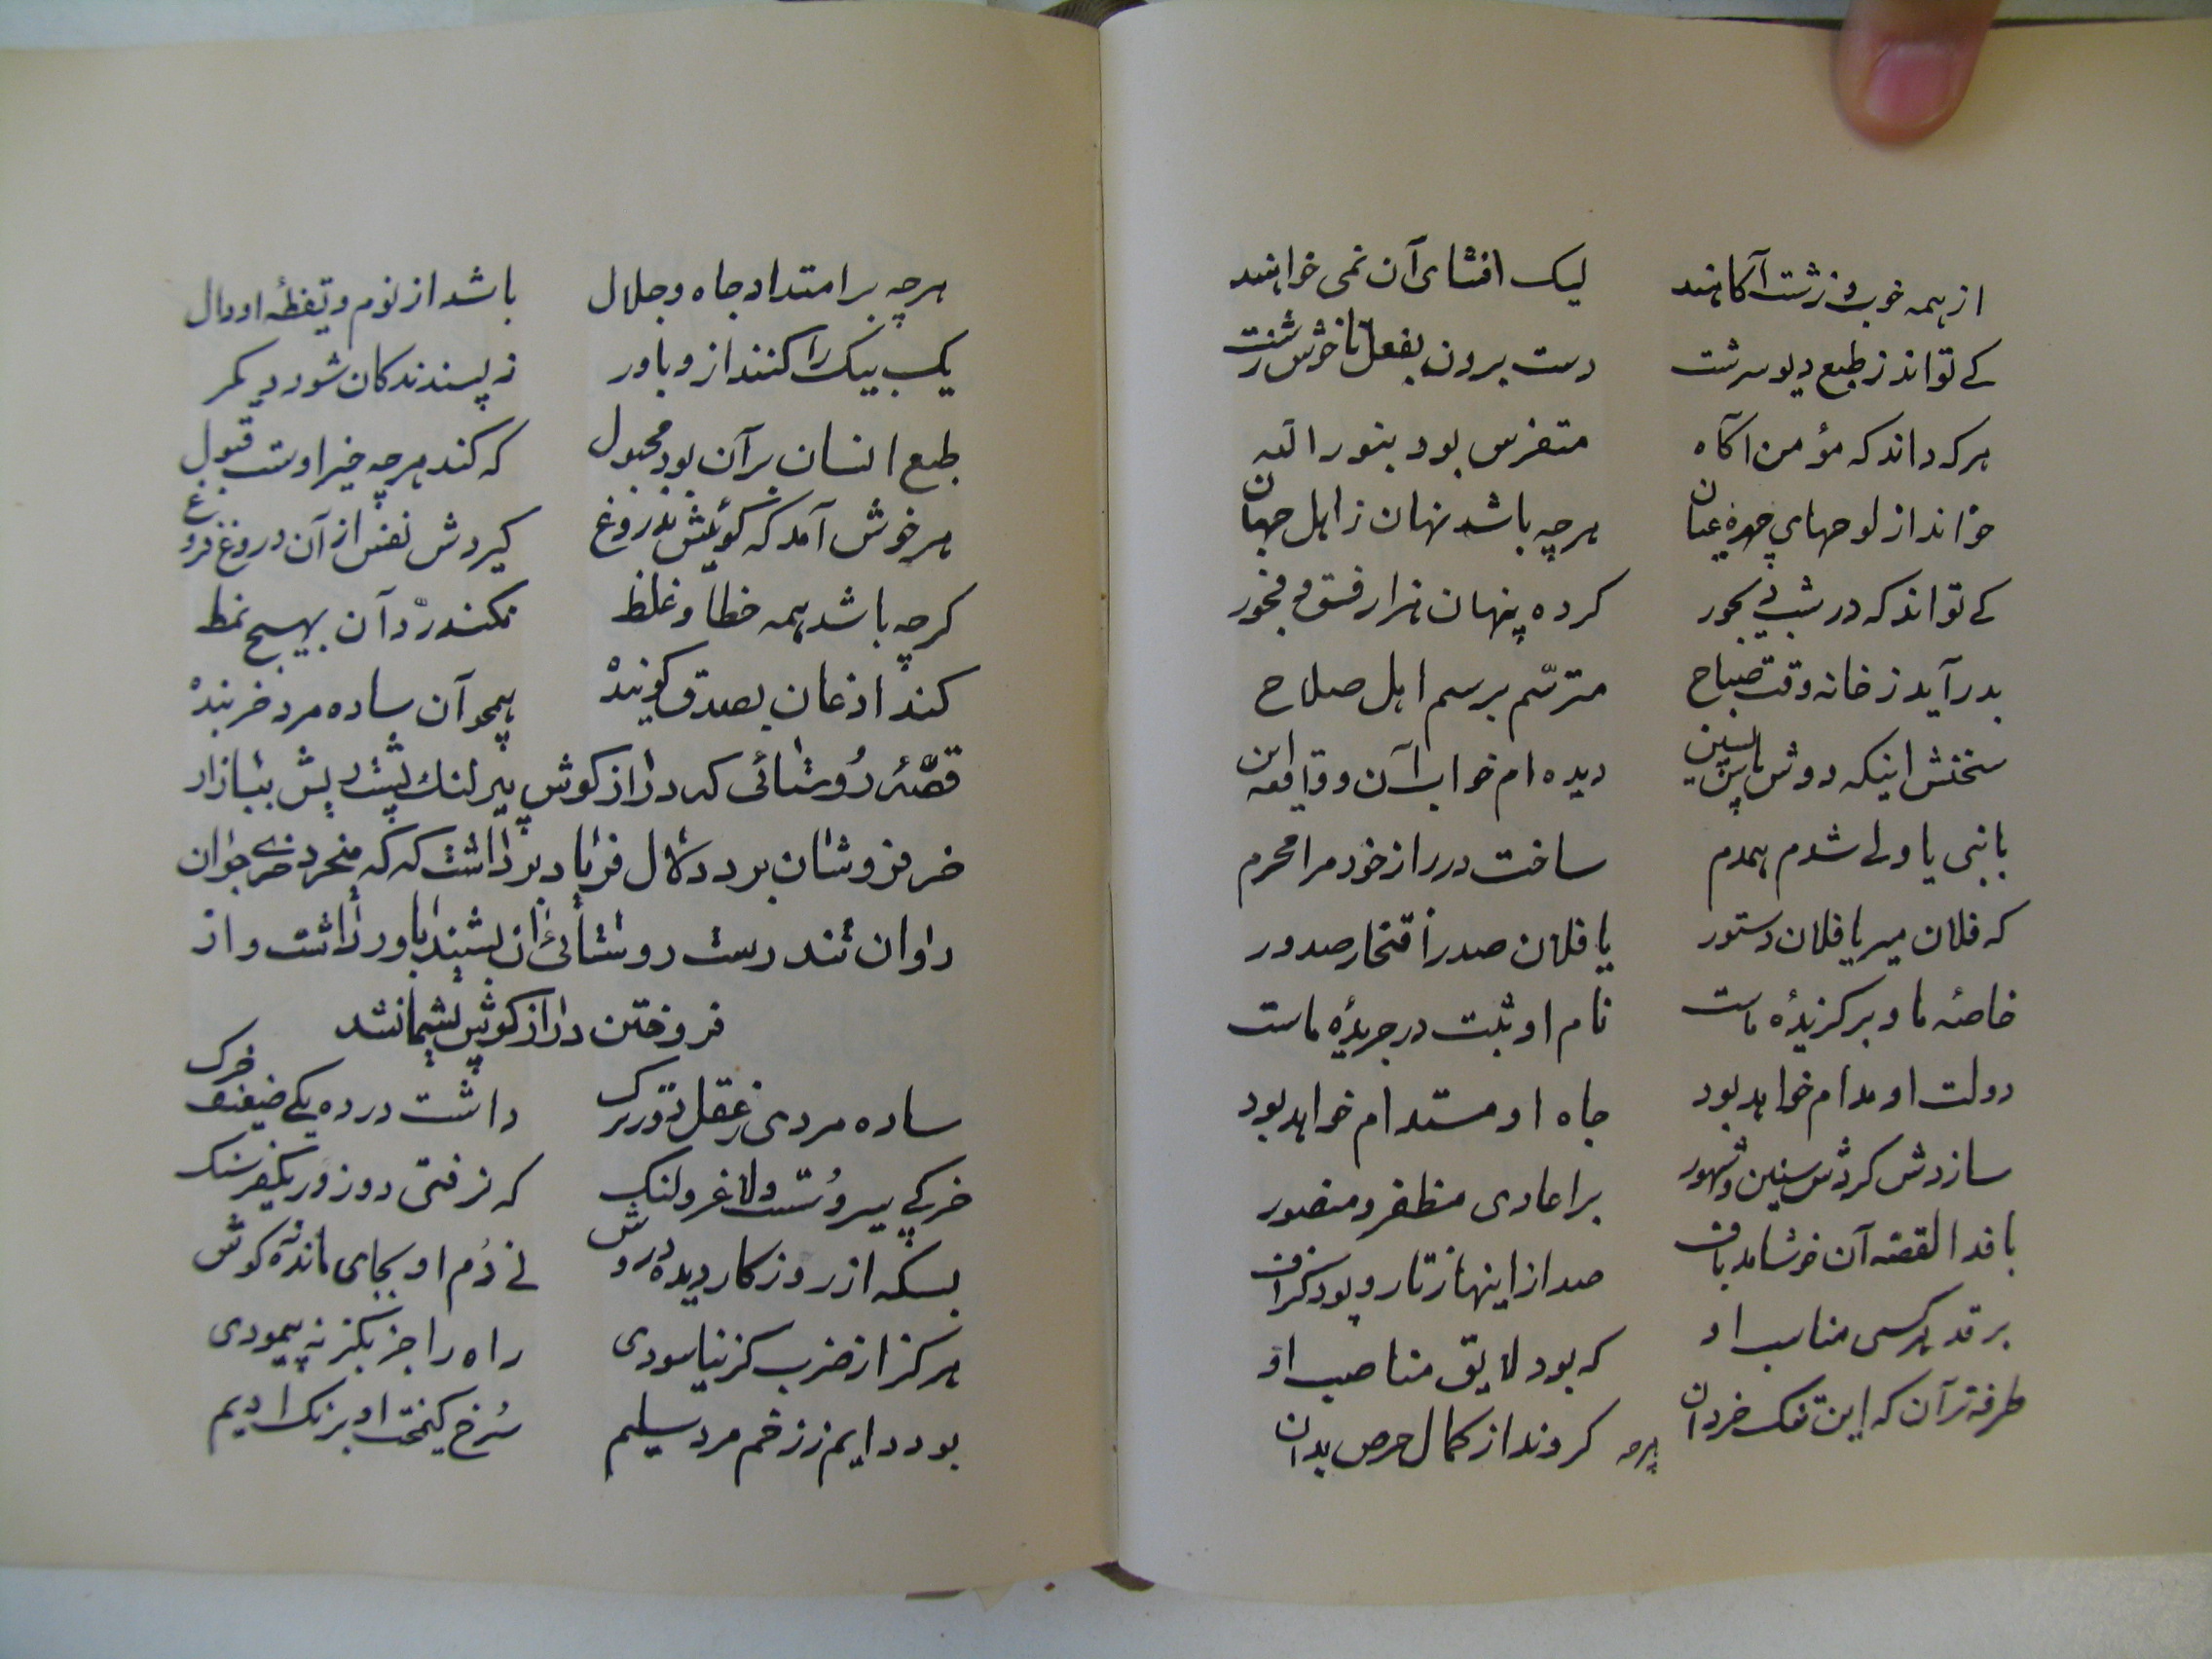 از همه خوب و زشت آکاهند لیک افشای آن نمی خواهند
کے تواند ز طبع دیو سرشت دست بردن بفعل ناخوش زشت
هرکه داند که مؤمن آکاه متفرس بود بنور الله
خواند از لوحهای چهره عیان هرچه باشد نهان ز اهل جهان
کے تواند که در شب دیجور کرده پنهان هزار فسق و فجور
بدر آید ز خانه وقت صباح مترسّم برسم اهل صلاح
سخنش اینکه دوش یا پسین پیش ازین دیده ام خواب آن و واقعه این
بانبی یا ولی شدم همدم ساخت در راز خود مرا محرم
که فلان میر یا فلان دستور یا فلان صدر افتخار صدور
خاصهٔ ما و برکزیدهٔ ماست نام او ثبت در جریدهٔ ماست
دولت او مدام خواهد بود جاه او مستدام خواهد بود
سازدش کردش سنین و شهور بر اعادی مظفر و منصور
بافد القصه آن خوشامد باف صد ازاینها ز تار و پود کزاف
بر قد هرکسی مناسب او که بود لایق مناصب او
طرفه تر آن که این تنک خردان کروند از کمال حرص بدان
هرچه
هرچه بر امتداد جاه و جلال باشد از نوم و یقظهٔ او دال
یک بیک را کنند ازو باور نه پسندند کان شود دیکر
طبع انسان بر آن بود مجبول که کند هرچه خیر اوست قبول
هر خوش آمد که کوئیش بدروغ کیردش نفس از آن دروغ فروغ
کرچه باشد همه خطا و غلط نکند ردّ آن بهیچ نمط
کند اذعان بصدق کوینده همچو آن ساده مرد خربنده
قصّهٔ رُوستائی که درازکوش پیر لنك پشت ریش ببازار
خرفروشان برد دلال فریاد برداشت که که میخرد خرے جوان
روان تندرست روستائی آن بشنید باور داشت و از
فروختن درازکوش پشیمان شد
ساده مردی ز عقل دورترک داشت در ده یکے ضعیف خرک
خرکے پیر و سُست و لاغر و لنک که نرفتی دو روز یکفرسنک
بسکه از روزکار دیده دروش نے دُم او بجای مانده نه کوش
هرکز از ضرب کز نیاسودی راه را جز بکز نه پیمودی
بود دایم ز زخم مرد سلیم سُرخ کیمخت او برنک ادیم